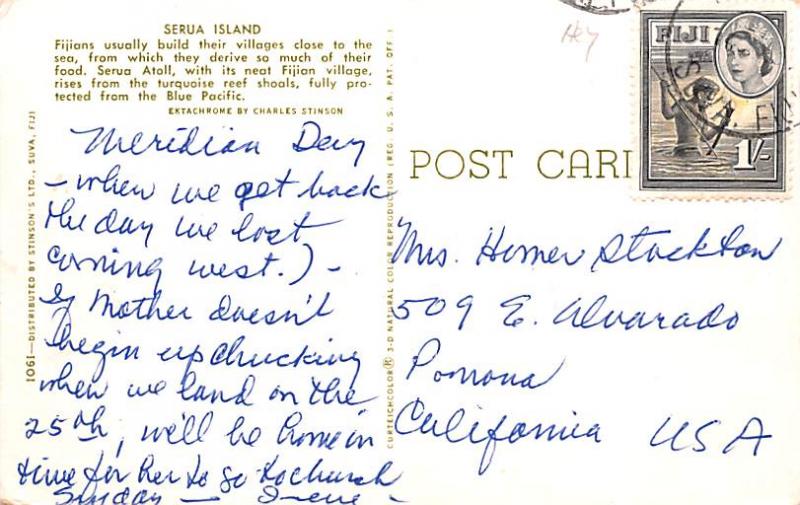 SERUA ISLAND
Fijians usually build their villages close to the
sea, from which they derive so much of their
food. Serua Atoll, with its neat Fijian village,
rises from the turquoise reef shoals, fully pro-
tected from the Blue Pacific.
EKTACHROME BY CHARLES STINSON
Meridian Day
- when we get back
the day we lost
coming west.) -
If Mother doesn't
begin upchucking
when we land on the
25th, we'll be home in
time for her to go to church
Sunday - Irene -
1061—DISTRIBUTED BY STINSON'S LTD., SUVA, FIJI
CURTEICHCOLOR® 3-D NATURAL COLOR REPRODUCTION (REG. U.S.A. PAT. OFF.)
POST CARD
Hey
FIJI
1/-
Mrs. Homer Stockton
509 E. Alvarado
Pomona
California USA